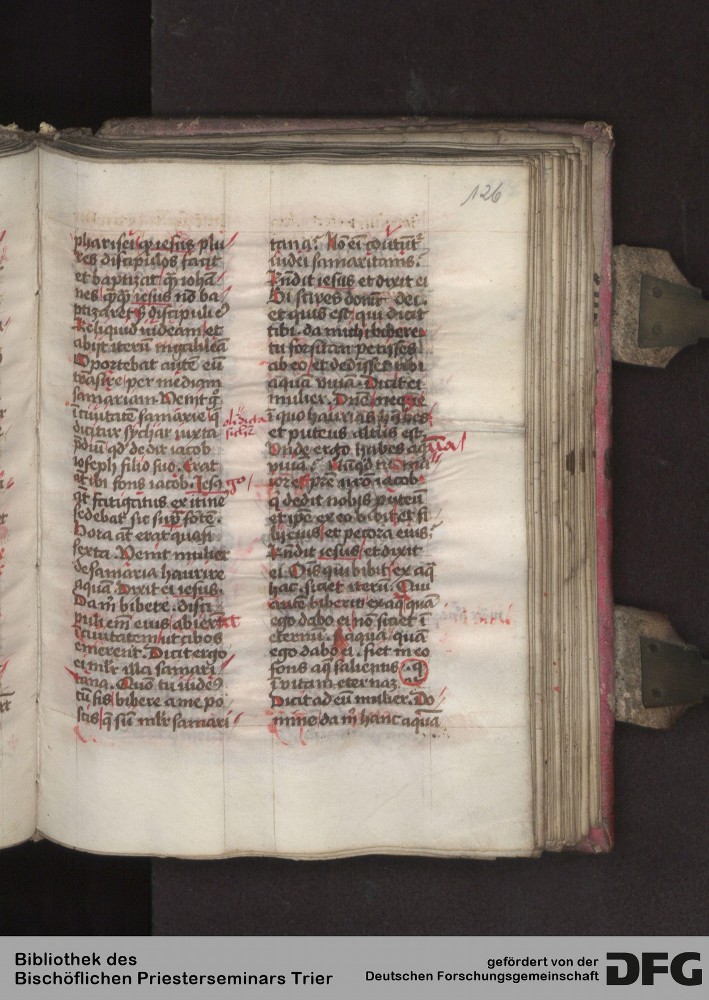 126
pharisei qͥ iesus plu
res discipulos facit
et baptizat / q̄ iohā
nes / qͥqͥ iesus nō ba
ptizaret / s̄ discipuli eͥ
Reliquid iudeam / et
abijt iterū in galileā
Oportebat autē eū
trāsire / per mediam
samariam. Uenit gͦ
ī ciuitatē samarie / q̄
dicitur sychar iuxta
p̄diū qd̄ dedit iacob
ioseph filio suo. Erat
at̄ ibi fons iacob. Iesꝯ gͦ /
fatigatus ex itine
sedebat sic sup̄ fōtē.
Hora at̄ erat quasi
sexta. Uenit mulier
de samaria haurire
aquā. Dixit ei iesus.
Da m̄ bibere. disci
puli em̄ eius / abierāt
ī ciuitatem / ut cibos
emerent. Dicit ergo
ei ml̄r illa samari
tana. Quō tu iudeꝯ
cū sis / bibere a me po
scis / q̄ sū ml̄r samari
tana? Nō eī coutūt̄
iudei samaritanis.
Rn̄dit iesus et dixit ei
Si scires donū dei.
et quis est / qui dicit
tibi. da mihi bibere
tu forsitan petisses
ab eo / et dedisset tibi
aquā viuā. Dicit ei
mulier. Dn̄e / neqꝫ
ī quo haurias / h̄es
et puteus altus est.
Unde ergo habes aq̄
uiuā
iore patre nr̄o iacob
q̄ dedit nobis puteū
et ip̄e ex eo bibit / et fi
lij eius / et pecora eius?
Rn̄dit iesus / et dixit
ei. Ois qui bibit / ex aq̄
hac. sitiet iterū. Qui
autē biberit / ex aq̄ quā
ego dabo ei / nō sitiet ī
eternū. Aqua / quā
ego dabo ei. fiet in eo
fons aq̄ salientis
ī vitam eternaꝫ.
Dicit ad eū mulier. Do
mine / da m̄ hanc aquā
Bibliothek des
Bischöflichen Priesterseminars Trier
gefördert von der
Deutschen Forschungsgemeinschaft
DFG